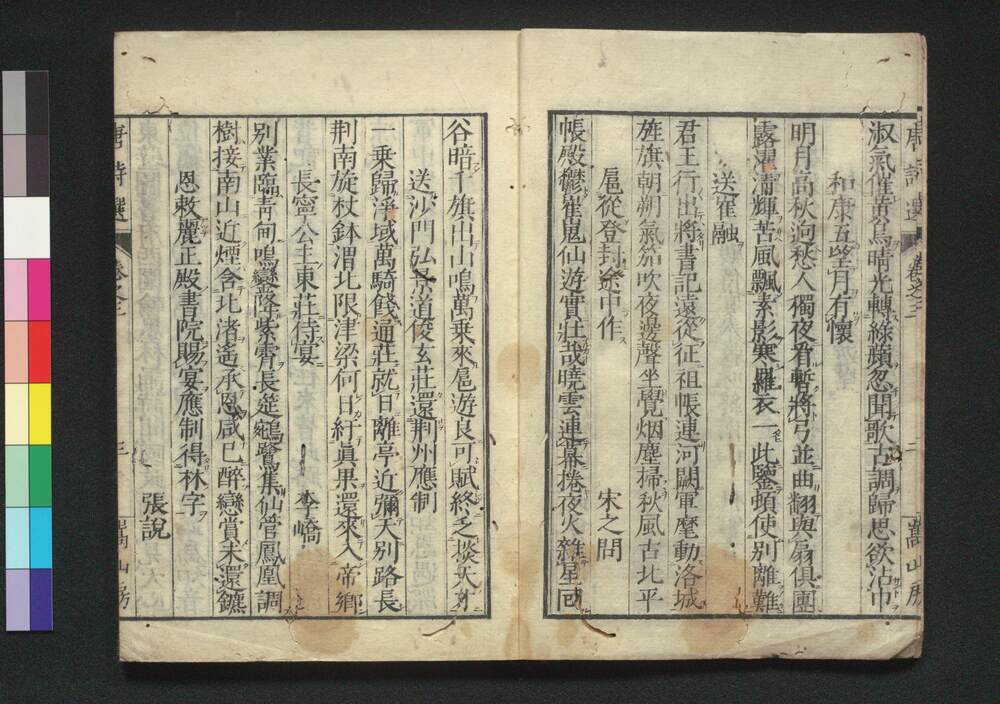 淑氣催黃鳥晴光轉綠蘋忽聞歌古調歸思欲沾巾
和康五望月有懷
明月高秋迥愁人獨夜看暫將弓並曲翻與扇俱團
露濯清輝苦風飄素影寒羅衣一此鑒頓使別離難
送崔融
君王行出將書記遠從征祖帳連河闕軍麾動洛城
旌旗朝朔氣笳吹夜邊聲坐覺烟塵掃秋風古北平
扈從登封途中作
宋之問
帳殿鬱崔嵬仙遊實壯哉曉雲連幕捲夜火雜星回
谷暗千旗出山鳴萬乘來扈遊良可賦終乏掞天才
送沙門弘景道俊玄莊還荊州應制
一乘歸淨域萬騎餞通莊就日離亭近彌天別路長
荊南旋杖鉢渭北限津梁何日紆真果還來入帝鄉
長寧公主東莊侍宴
李嶠
別業臨青甸鳴鑾降紫霄長筵鵷鷺集仙管鳳凰調
樹接南山近煙含北渚遙承恩咸已醉戀賞未還鑣
恩敕麗正殿書院賜宴應制得林字
張說
唐詩選
卷之三
三
嵩山房